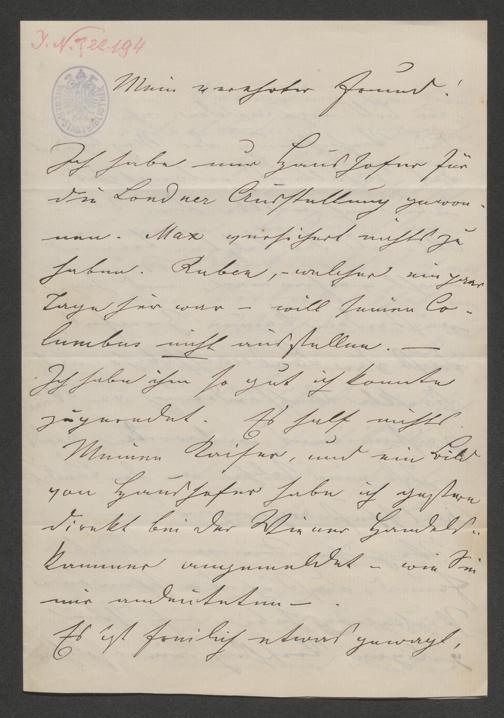 I. N. 722.194
Mein verehrter Freund!
Ich habe nur Haushofer für
die Londner Ausstellung gewon-
nen. Max versichert nichts zu
haben. Ruben, welcher ein paar
Tage hier war – will seinen Co-
lumbus nicht ausstellen. —
Ich habe ihm so gut ich konnte
zugeredet. Es half nichts.
Meinen Kaiser, und ein Bild
von Haushofer habe ich gestern
direkt bei der Wiener Handels-
kammer angemeldet – wie Sie
mir andeuteten – .
Es ist freilich etwas gewagt,